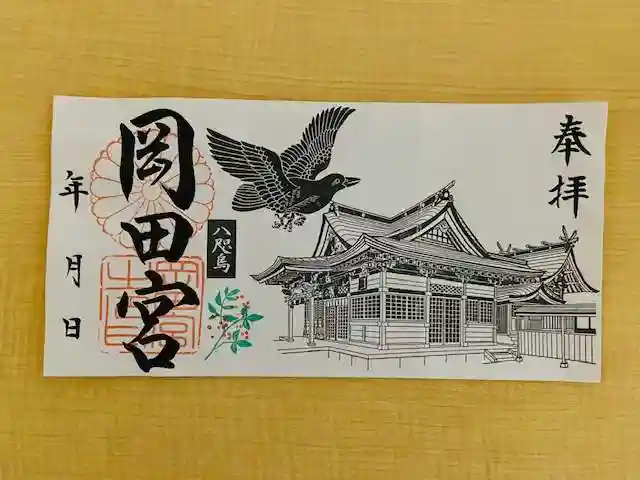 奉拝
八咫烏
岡田宮
年 月 日